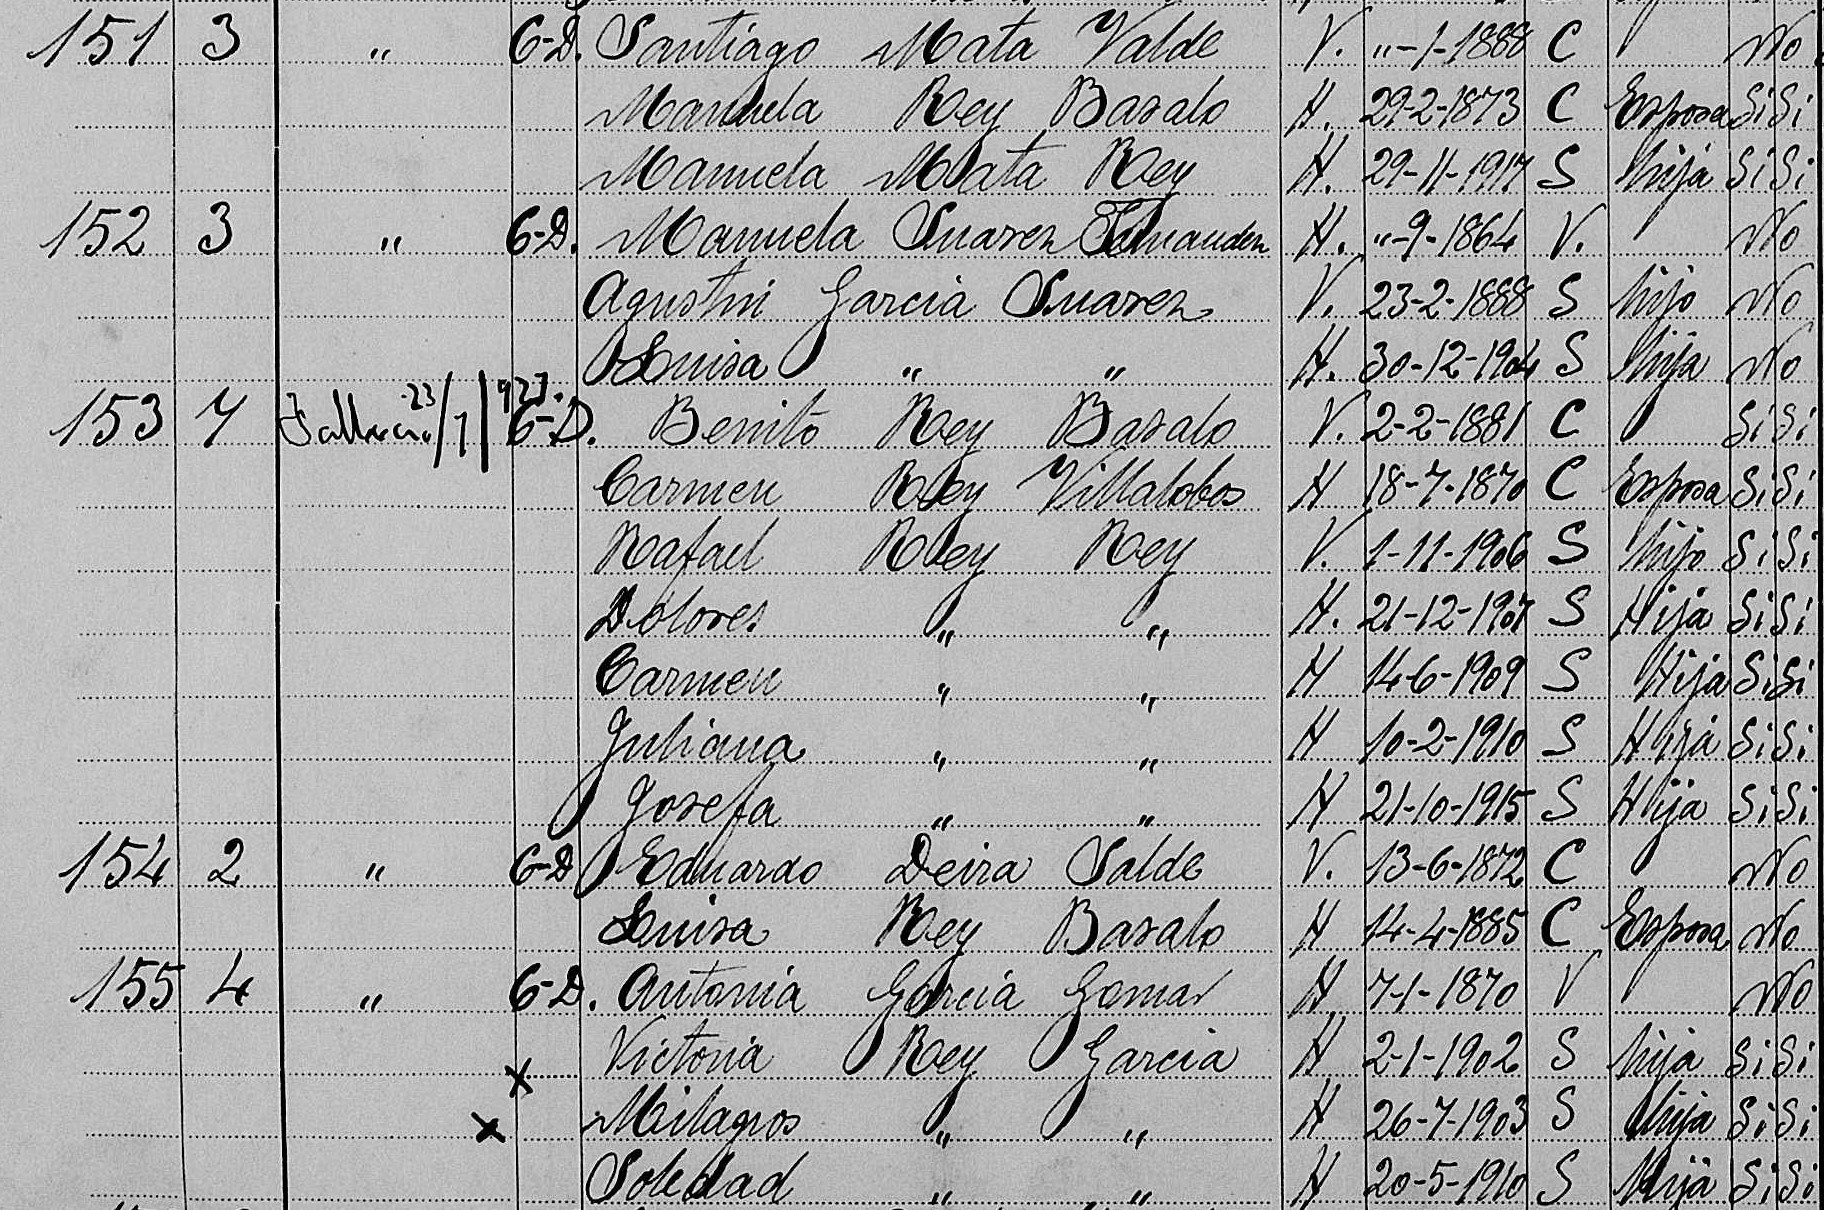 151 3 " 6-D. Santiago Mata Valde V. "-1-1888 C No.
Manuela Rey Basalo H. 29-2-1873 C Esposa Si Si
Manuela Mata Rey H. 29-11-1917 S hija Si Si
152 3 " 6-D. Manuela Suarez Fernandez H. "-9-1864 V. No
Agustin Garcia Suarez V. 23-2-1888 S hijo No
Luisa " " H. 30-12-1904 S hija No
153 7 23/7/927. 6-D. Benito Rey Basalo V. 2-2-1881 C Si Si
Carmen Rey Villalobos H 18-7-1870 C Esposa Si Si
Rafael Rey Rey V. 1-11-1906 S hijo Si Si
Dolores " " H. 21-12-1907 S Hija Si Si
Carmen " " H 14-6-1909 S Hija Si Si
Juliana " " H 10-2-1910 S Hija Si Si
Josefa " " H 21-10-1915 S Hija Si Si
154 2 " 6-D Eduardo Deira Salde V. 13-6-1872 C No
Luisa Rey Basalo H 14-4-1885 C Esposa No
155 4 " 6-D. Antonia Garcia Gomar H. 7-1-1870 V No
x Victoria Rey Garcia H 2-1-1902 S hija Si Si
x Milagros " " H 26-7-1903 S hija Si Si
Soledad " " H 20-5-1910 S hija Si Si